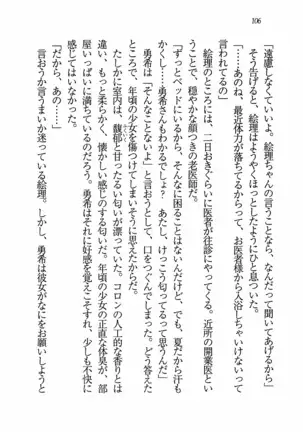 106
「遠慮しなくていいよ。絵理ちゃんの言うことなら、なんだって聞いてあげるから」
そう告げると、絵理はようやくほっとしたようにひと息ついて、
「……あのね、最近体力が落ちてるからって、お医者様から入浴しちゃいけないって
言われてるの」
絵理のところには、二日おきくらいに医者が往診にやってくる。近所の開業医とい
うことで、穏やかな顔つきの老医師だ。
「ずっとベッドにいるから、そんなに不自由はないんだけど、でも、夏だから汗も
かくし……勇希さんもわかるでしょ？　あたし、けっこう匂ってるって思うんだ」
勇希は「そんなことないよ」と言おうとして、口をつぐんでしまった。どう答えた
ところで、年頃の少女を傷つけてしまいそうだ。
たしかに室内は、馥郁と甘ったるい匂いが漂っていた。コロンの人工的な香りとは
違う、もっと生々しく、懐かしい感じのする匂い。年頃の少女の正直な体臭が、部
屋いっぱいに満ちているのだろう。勇希はそれに好感を覚えこそすれ、少しも不快に
感じてはいなかった。
「だから、あの……」
言おうか言うまいか迷っている絵理。しかし、勇希は彼女がなにをお願いしようと